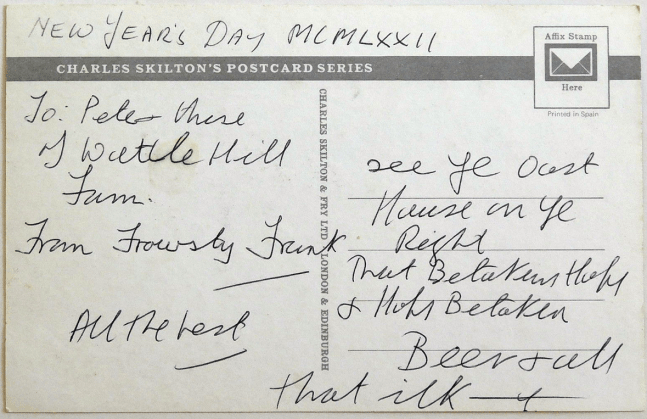 NEW YEAR'S DAY MCMLXXII
CHARLES SKILTON'S POSTCARD SERIES
Affix Stamp
Here
Printed in Spain
To: Peter
of Wattle Hill
Farm.
From Frowsty Frank
All the best
CHARLES SKILTON & FRY LTD LONDON & EDINBURGH
see Ye Oast
House on Ye
Right
That Betokens Hops
& Hops Betoken
Beer & all
that ilk